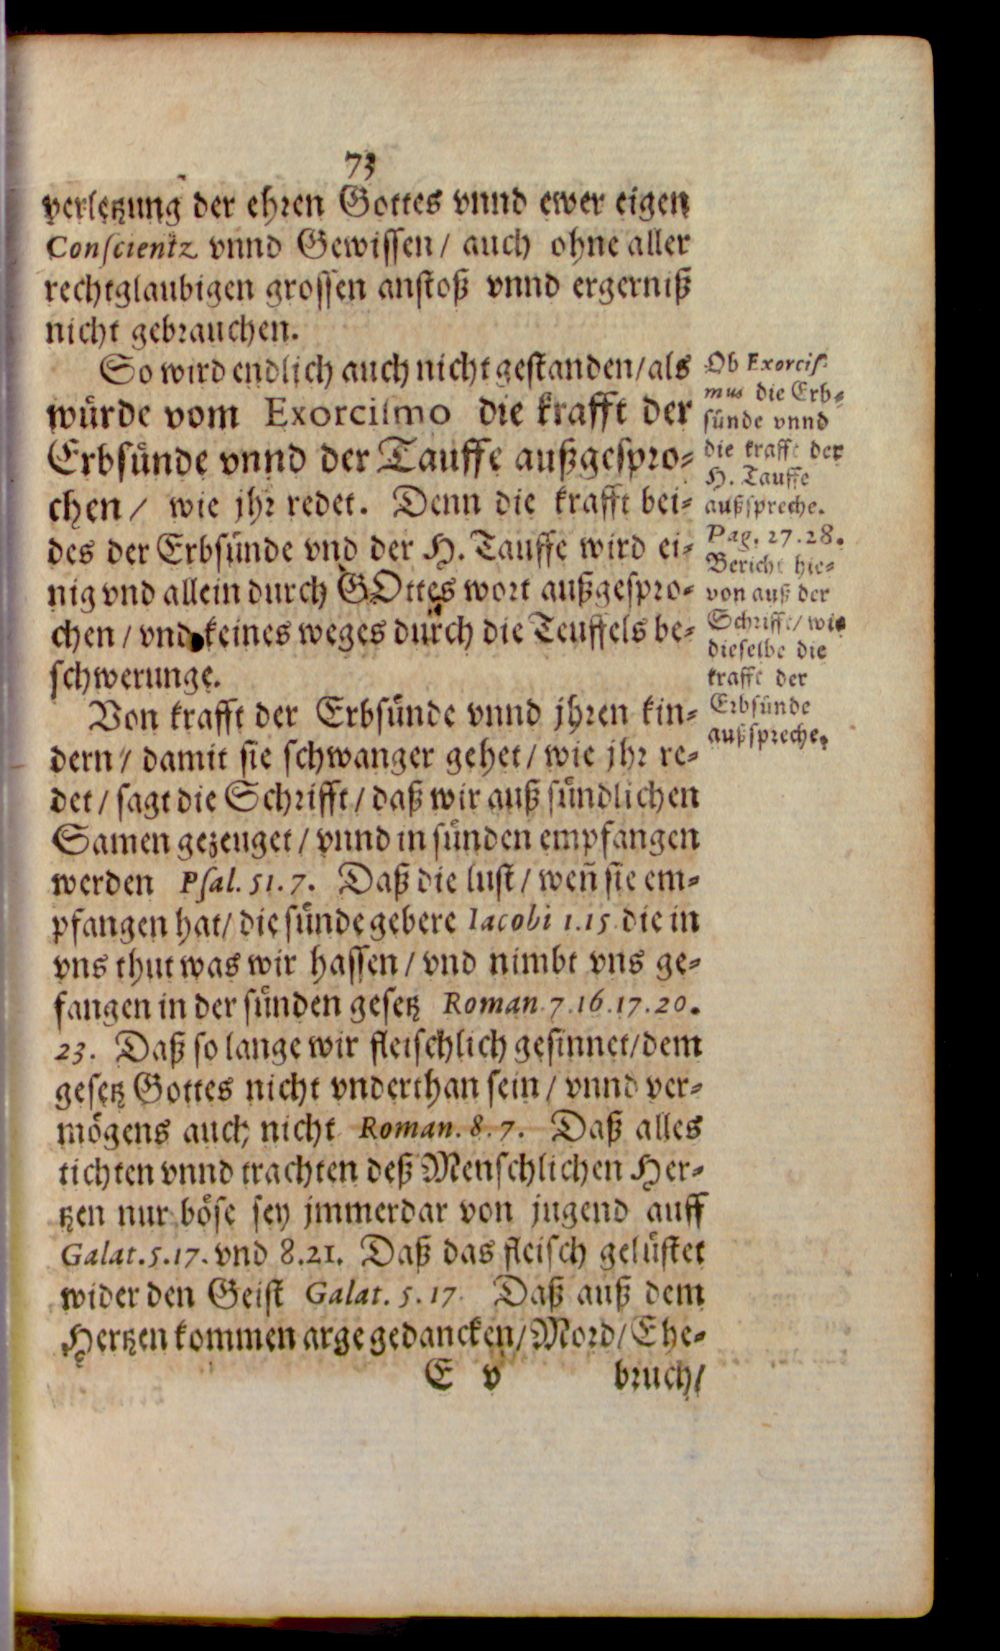 73
verletzung der ehren Gottes vnnd ewer eigen
Conſcientz vnnd Gewiſſen / auch ohne aller
rechtglaubigen groſſen anſtoß vnnd ergerniß
nicht gebrauchen.
So wird endlich auch nicht geſtanden / als
würde vom Exorciſmo die krafft der
Erbſünde vnnd der Tauffe außgeſpro-
chen / wie jhr redet. Denn die krafft bei-
des der Erbſünde vnd der H. Tauffe wird ei-
nig vnd allein durch GOttes wort außgeſpro-
chen / vnd keines weges durch die Teuffels be-
ſchwerunge.
Von krafft der Erbſünde vnnd jhren kin-
dern / damit ſie ſchwanger gehet / wie jhr re-
det / ſagt die Schrifft / daß wir auß ſündlichen
Samen gezeuget / vnnd in ſünden empfangen
werden Pſal. 51. 7. Daß die luſt / weñ ſie em-
pfangen hat / die ſünde gebere Iacobi 1. 15. die in
vns thut was wir haſſen / vnd nimbt vns ge-
fangen in der ſünden geſetz Roman. 7. 16. 17. 20.
23. Daß ſo lange wir fleiſchlich geſinnet / dem
geſetz Gottes nicht vnderthan ſein / vnnd ver-
mögens auch nicht Roman. 8. 7. Daß alles
tichten vnnd trachten deß Menſchlichen Her-
tzen nur böſe ſey jmmerdar von jugend auff
Galat. 5. 17. vnd 8. 21. Daß das fleiſch gelüſtet
wider den Geiſt Galat. 5. 17. Daß auß dem
Hertzen kommen arge gedancken / Mord / Ehe-
E v bruch /
Ob Exorciſ-
mus die Erb-
ſünde vnnd
die krafft der
H. Tauffe
außſpreche.
Pag. 27. 28.
Bericht hie-
von auß der
Schrifft / wie
dieſelbe die
krafft der
Erbſünde
außſpreche.